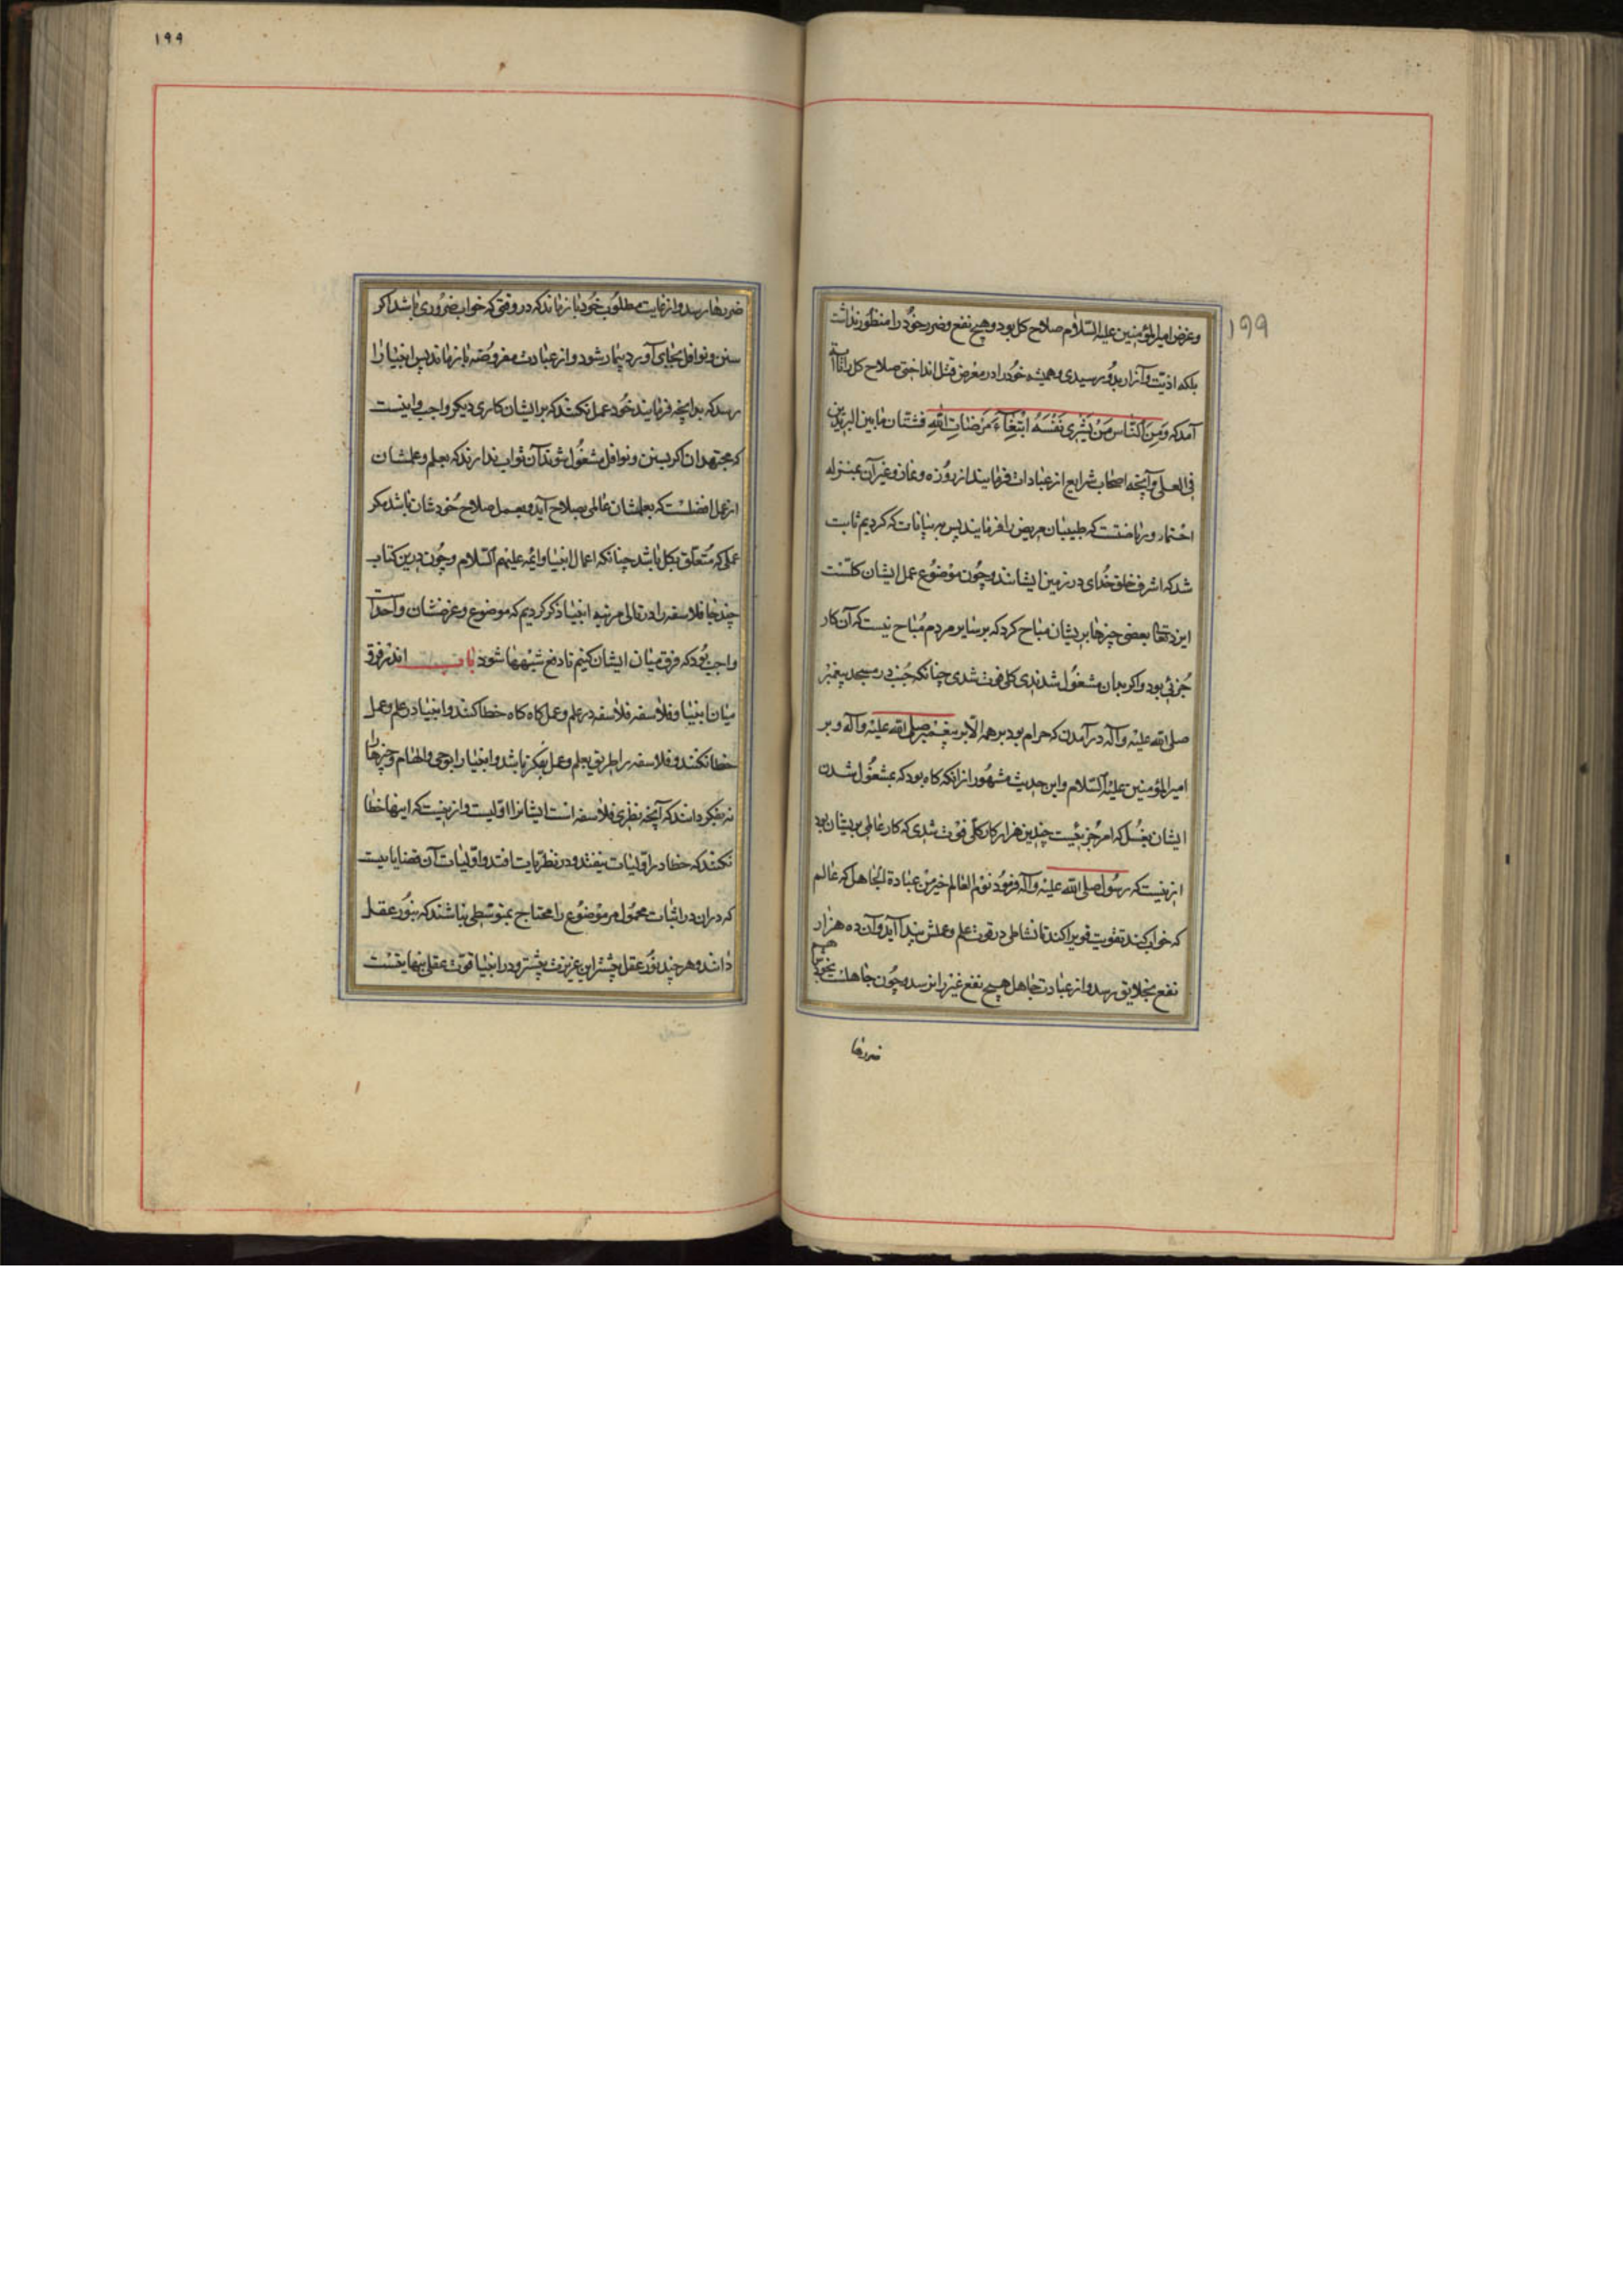 وغرض امیرالمؤمنین علیه السّلام صلاح کل بود و هیچ نفع وضرر خود را منظور نداشت
بلکه اذیّت وآزار بدو رسیدی وهمیشه خود را در معرض قتل انداختی صلاح کل را تا آیة
آمد که وَمِنَ النّاسِ مَنْ یَشْری نَفْسَهُ ابْتِغَآءَ مَرْضَاتِ اللّهِ فشتّان مابین
فی العلی وآنچه اصحاب شرایع از عبادات فرمایند از روزه ونماز وغیر آن بمنزله
احتما و ریاضتست که طبیبان مریض را فرمایند پس بر بیانات که کردیم ثابت
شد که اشرف خلق خدای در زمین ایشانند وچون موضوع عمل ایشان کلّست
ایزد تعالی بعضی چیزها بریشان مباح کرد که بر سایر مردم مباح نیست که آن کار
جُزئی بود واکر بدان مشغول شدندی کلی فوت شدی چنانکه جُنب در مسجد پیغمبر
صلی الله علیه وآله درآمدن که حرام بود بر همه الّا بر پیغمبر صلی الله علیه وآله و بر
امیرالمؤمنین علیه السّلام واین حدیث مشهور از انکه کاه بود که بمشغول شدن
ایشان بغسل که امر جزئیست چندین هزار کار کلّی فوت شدی که کار عالمی بریشان بود
ازینست که رسول صلی الله علیه وآله فرمود نوم العالم خیر من عبادة الجاهل که عالم
که خواب کند تقویت قوی را کند تا نشاطی در قوت علم وعملش پیدا آید وآن ده هزار
نفع بخلایق رسد واز عبادت جاهل هیچ نفع غیر را نرسد وچون جاهلست بخودش هم
ضررها
۱۹۹
۱۹۹
ضررها رسد واز غایت مطلوب خود باز ماند که در وقتی که خواب ضروری باشد اکر
سنن ونوافل بجای آورد بیمار شود واز عبادت مفروضه باز ماند پس انبیا را
رسد که بدانچه فرمایند خود عمل نکنند که بر ایشان کاری دیکر واجب واینست
که مجتهدان اکر بسنن ونوافل مشغول شوند آن ثواب ندارند که بعلم وعلمشان
از عمل افضلست که بعلمشان عالمی بصلاح آید وبعمل صلاح خودشان باشد مکر
عملی که متعلّق بکل باشد چنانکه اعمال انبیا وایمه علیهم السّلام وچون درین کتاب
چند جا فلاسفه را در تالی مرتبه انبیا ذکر کردیم که موضوع وغرضشان واحد آ
واجب بود که فرق میان ایشان کنیم تا دفع شبهها شود باب اندر فرق
میان انبیا وفلاسفه فلاسفه در علم وعمل کاه کاه خطا کنند وانبیا در علم وعمل
خطا نکنند وفلاسفه را طریق بعلم وعمل بفکر باشد وانبیا را بوحی والهام وچیزها را
نه بفکر دانند که آنچه نظری فلاسفه است ایشانرا اوّلیست وازینست که اینها خطا
نکنند که خطا در اوّلیات نیفتد ودر نظریات افتد واوّلیات آن قضایاییست
که در ان در اثبات محمول مر موضوع را محتاج بمتوسطی نباشند که بنور عقل
دانند وهر چند نور عقل بیشتر این غریزت بیشتر ودر انبیا قوّت عقلی بنهایتست